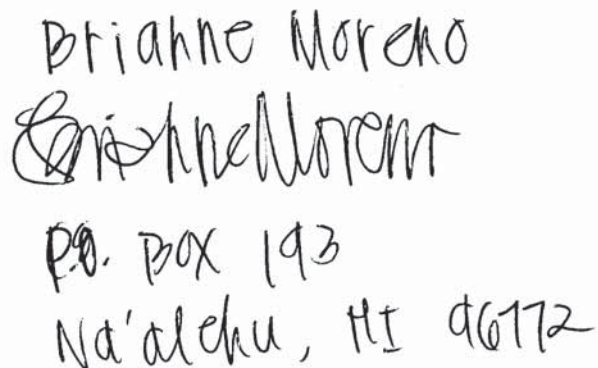 Brianne Moreno
Brianne Moreno
P.O. BOX 193
Na'alehu, HI 96772